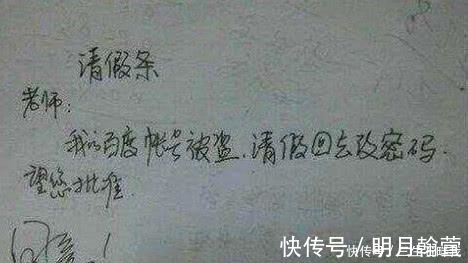 请假条
老师：
我的百度帐号被盗，请假回去改密码.
望您批准
同意!
快传号／明月翰萱